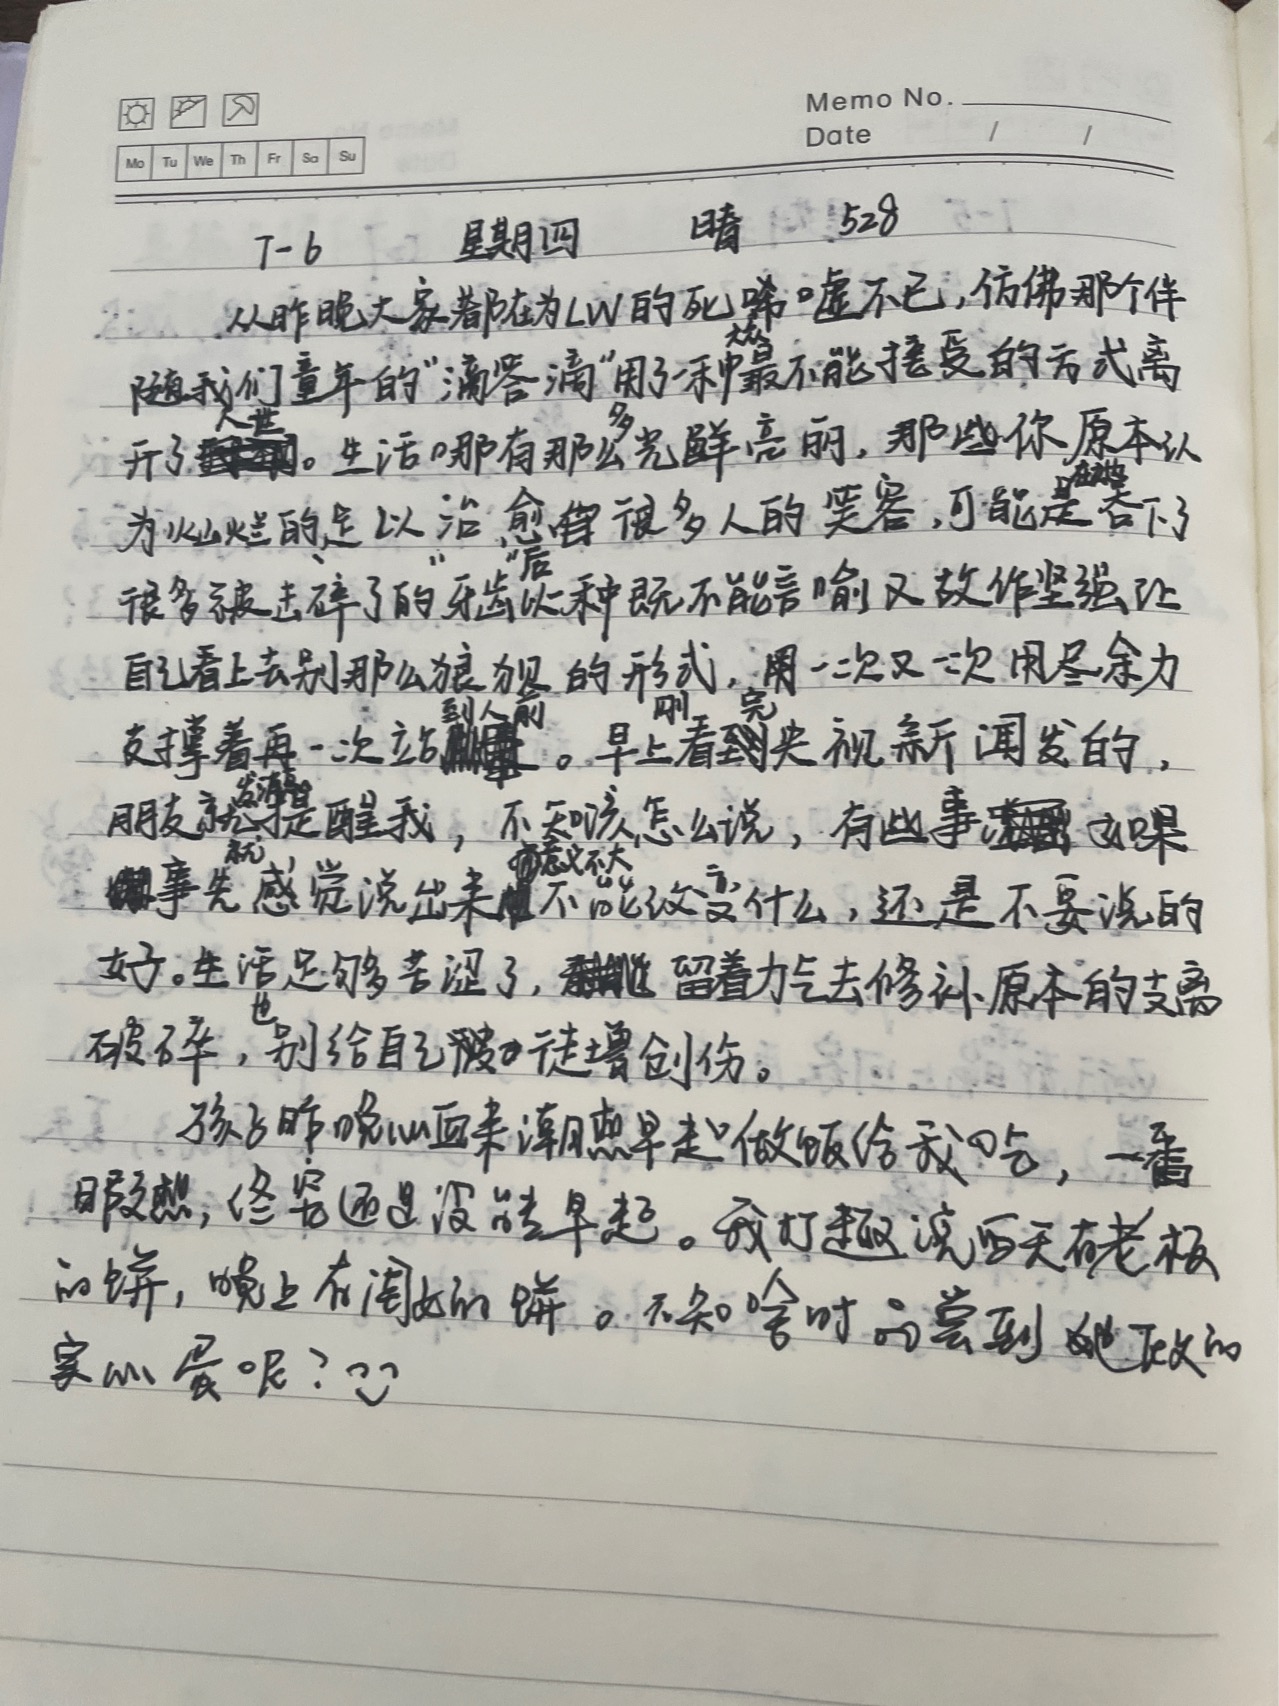 Memo No.
Date / /
Mo Tu We Th Fr Sa Su
7-6 星期四 晴 528
从昨晚大家都在为LW的死唏嘘不已,仿佛那个伴
随我们童年的“滴答滴”用了一种大众最不能接受的方式离
开了人世。生活哪有那么多光鲜亮丽,那些你原本以
为灿烂的、足以治愈很多人的笑容,可能是吞下了
很多被击碎了的“牙齿”后以一种既不能言喻又故作坚强让
自己看上去别那么狼狈的形式,用一次又一次用尽余力
支撑着再一次站到人前。早上刚看完央视新闻发的,
朋友就发消息提醒我,不知该怎么说,有些事如果
事先就感觉说出来意义不大,不能改变什么,还是不要说的
好。生活足够苦涩了,留着力气去修补原本的支离
破碎,也别给自己徒增创伤。
孩子昨晚心血来潮想早起做饭给我吃,一番
暇想,终究还是没能早起。我打趣说白天有老板
的饼,晚上有闺女的饼。不知啥时品尝到她做的
实心蛋呢?